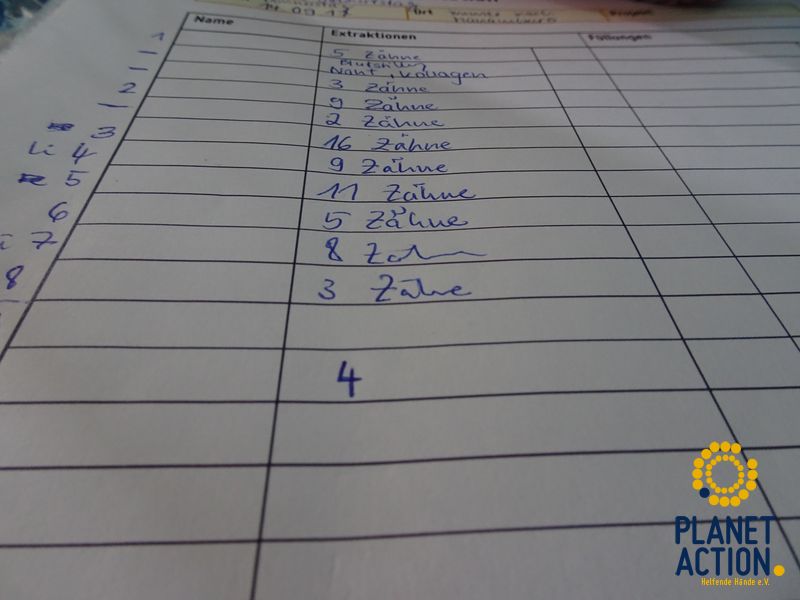 14.09.17 Ort
Name Extraktionen Füllungen
1 5 Zähne
— Blutstillung
— Naht, Kollagen
2 3 Zähne
— 9 Zähne
2 Zähne
3 16 Zähne
li 4 9 Zähne
5 11 Zähne
6 5 Zähne
7 8 Zähne
8 3 Zähne
4
PLANET
ACTION.
Helfende Hände e.V.